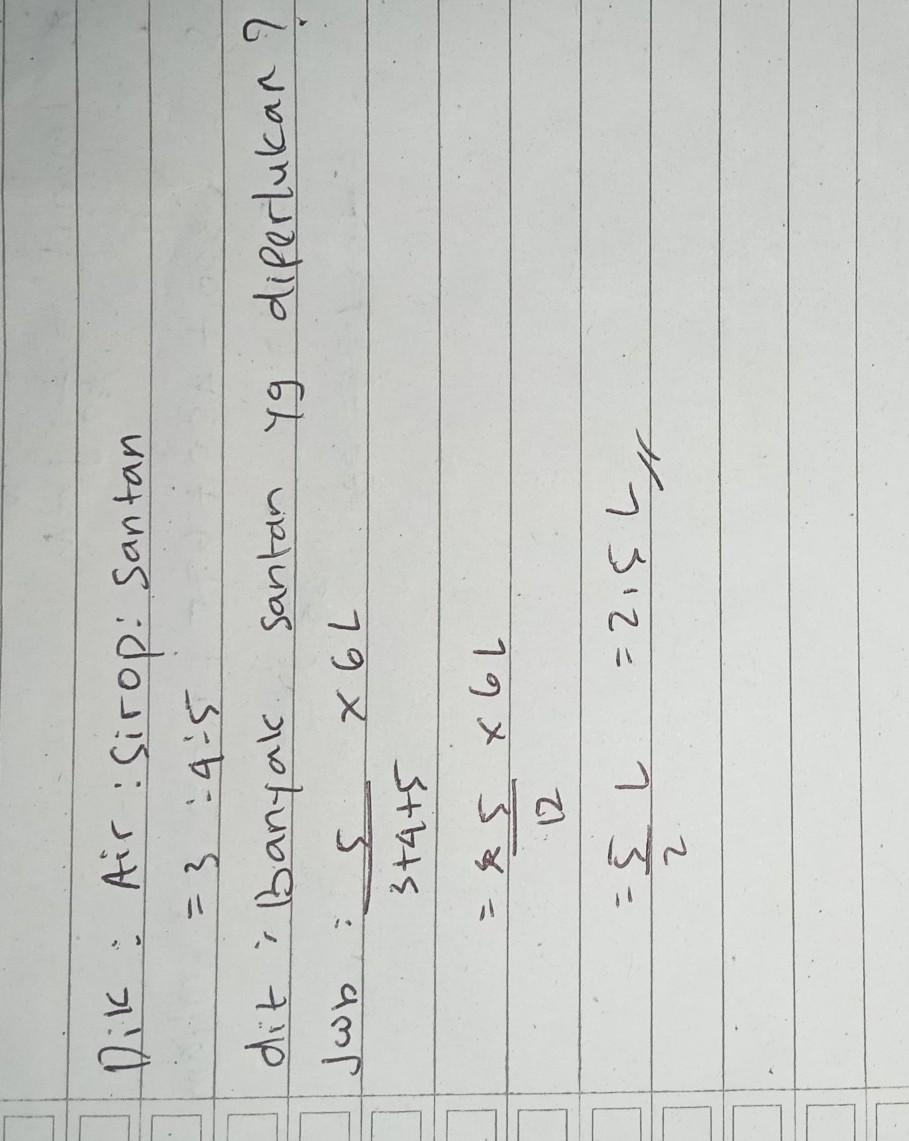 Dik : Air : Sirop : Santan
= 3 : 4 : 5
dit : Banyak santan yg diperlukan ?
Jwb : 5 x 6 L
3+4+5
= 5 x 6 L
12
= 5 L = 2,5 L
2